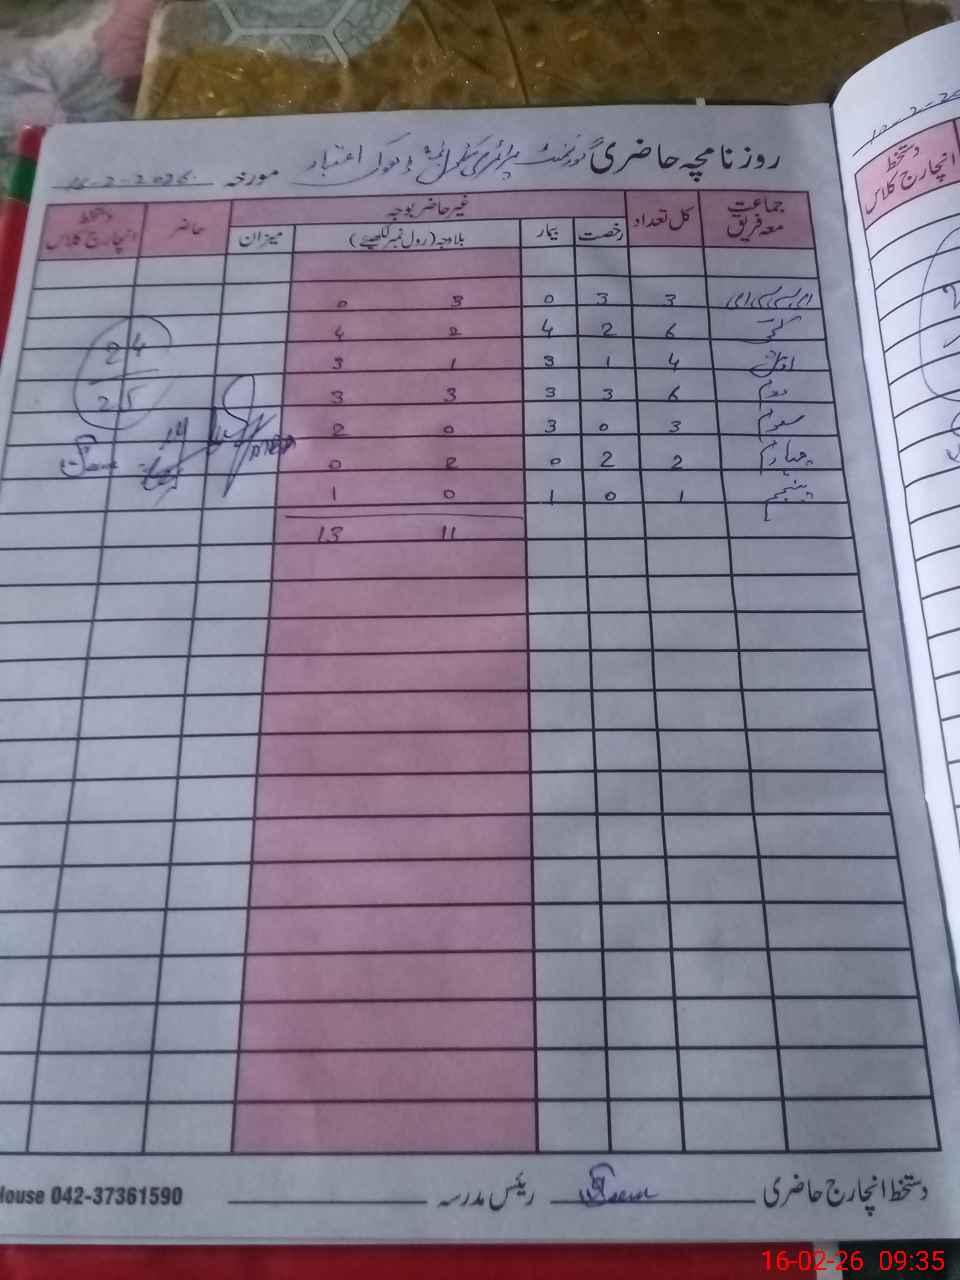 روزنامچہ حاضری گورنمنٹ پرائمری سکول ڈھوک اعتبار مورخہ 16-2-2026
جماعت معہ فریق کل تعداد غیر حاضر بوجہ حاضر دستخط انچارج کلاس
رخصت بیمار بلاوجہ (رول نمبر لکھیئے) میزان
ای سی سی ای 3 3 0 3 0
کچی 6 2 4 2 4
اول 4 1 3 1 3
دوم 6 3 3 3 3
سوم 3 0 3 0 2
چہارم 2 2 0 2 0
پنجم 1 0 1 0 1
11 13
24
25
دستخط انچارج حاضری رئیس مدرسہ
House 042-37361590
دستخط
انچارج کلاس
16-02-26 09:35